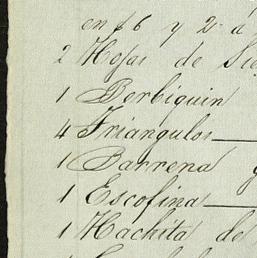 en $6 y 2 á
2 Hojas de Sie
1 Berbiquin
4 Triangulos
1 Barrena y
1 Escofina
1 Hachita de